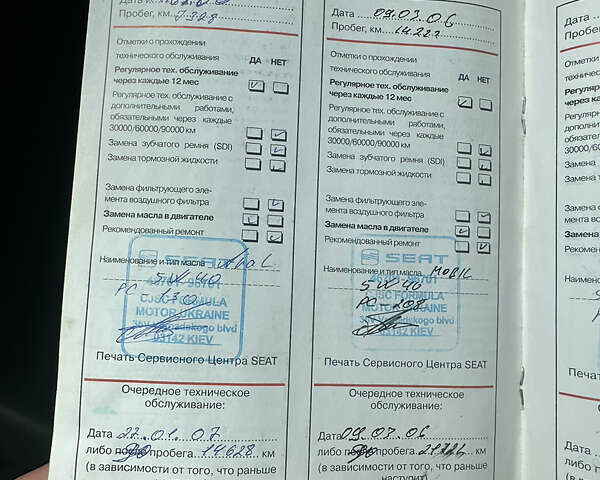 Пробег, км. 7328
Отметки о прохождении
технического обслуживания
ДА НЕТ
Регулярное тех. обслуживание
через каждые 12 мес
Регулярное тех. обслуживание с
дополнительными работами,
обязательными через каждые
30000/60000/90000 км
Замена зубчатого ремня (SDI)
Замена тормозной жидкости
Замена фильтрующего эле-
мента воздушного фильтра
Замена масла в двигателе
Рекомендованный ремонт
SEAT
Наименование и тип масла
5W40
CJSC FORMULA
MOTOR UKRAINE
blvd
03142 KIEV
Печать Сервисного Центра SEAT
Очередное техническое
обслуживание:
Дата 27.01.07
либо до пробега 14628 км
(в зависимости от того, что раньше
Дата 09.03.06
Пробег, км. 14222
Отметки о прохождении
технического обслуживания
ДА НЕТ
Регулярное тех. обслуживание
через каждые 12 мес
Регулярное тех. обслуживание с
дополнительными работами,
обязательными через каждые
30000/60000/90000 км
Замена зубчатого ремня (SDI)
Замена тормозной жидкости
Замена фильтрующего эле-
мента воздушного фильтра
Замена масла в двигателе
Рекомендованный ремонт
SEAT
Наименование и тип масла MOBIL
5W40
PC-208
CJSC FORMULA
MOTOR UKRAINE
blvd
03142 KIEV
Печать Сервисного Центра SEAT
Очередное техническое
обслуживание:
Дата 09.07.06
либо до пробега км
(в зависимости от того, что раньше
наступит)
Дата
Пробег
Отметки
техничес
Регулярн
через ка